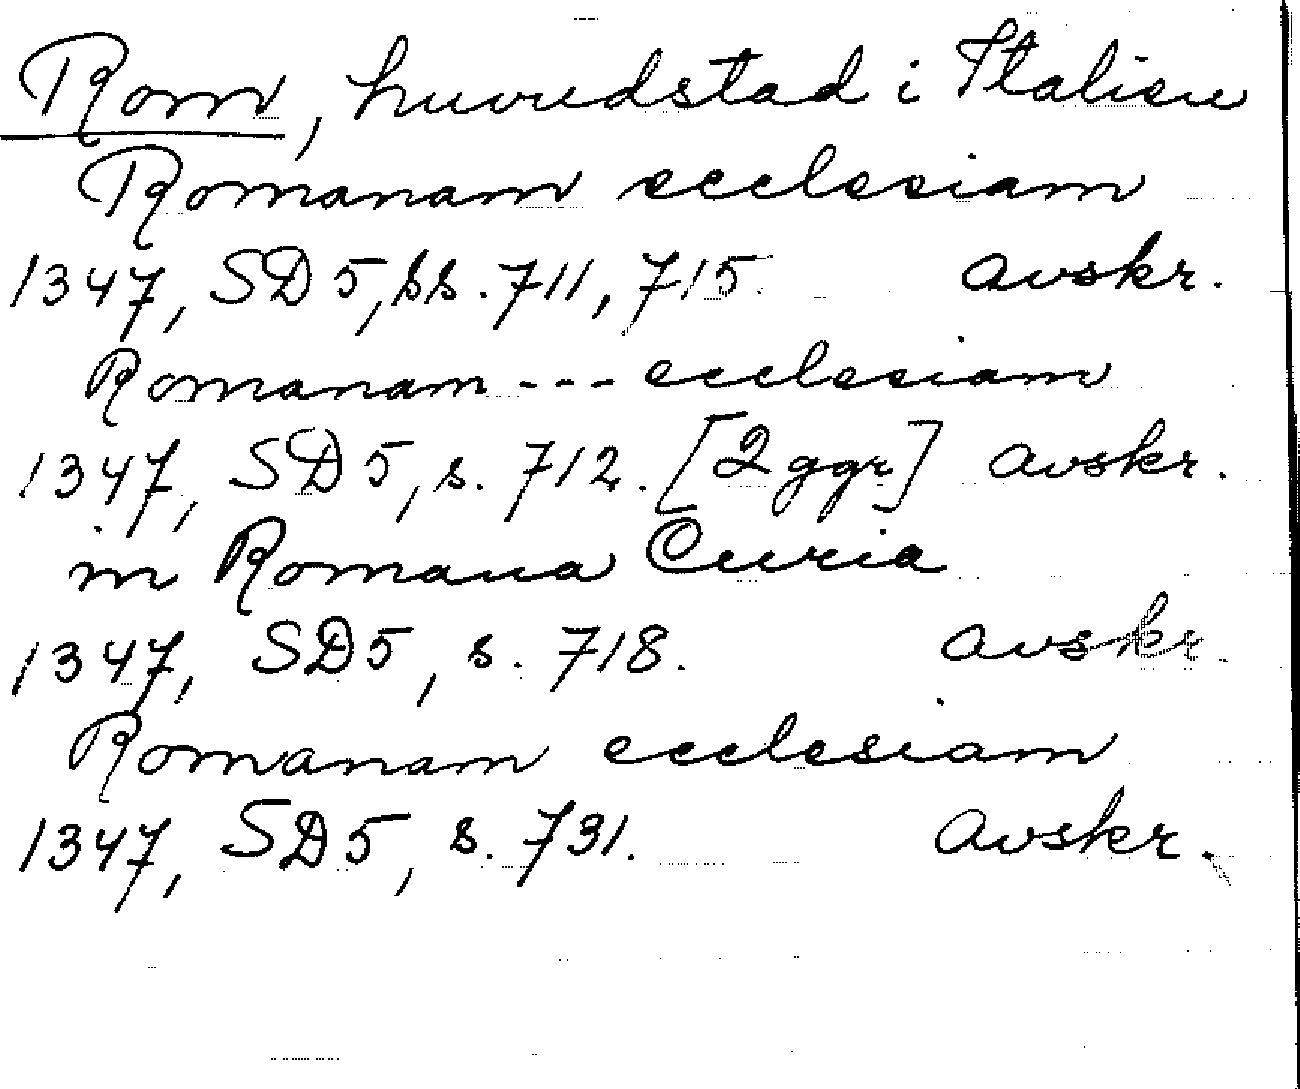 Rom, huvudstad i Italien
Romanam ecclesiam
1347, SD5, ss. 711, 715. avskr.
Romanam --- ecclesiam
1347, SD5, s. 712. [2 ggr] avskr.
in Romana Curia
1347, SD5, s. 718. avskr.
Romanam ecclesiam
1347, SD5, s. 731. avskr.